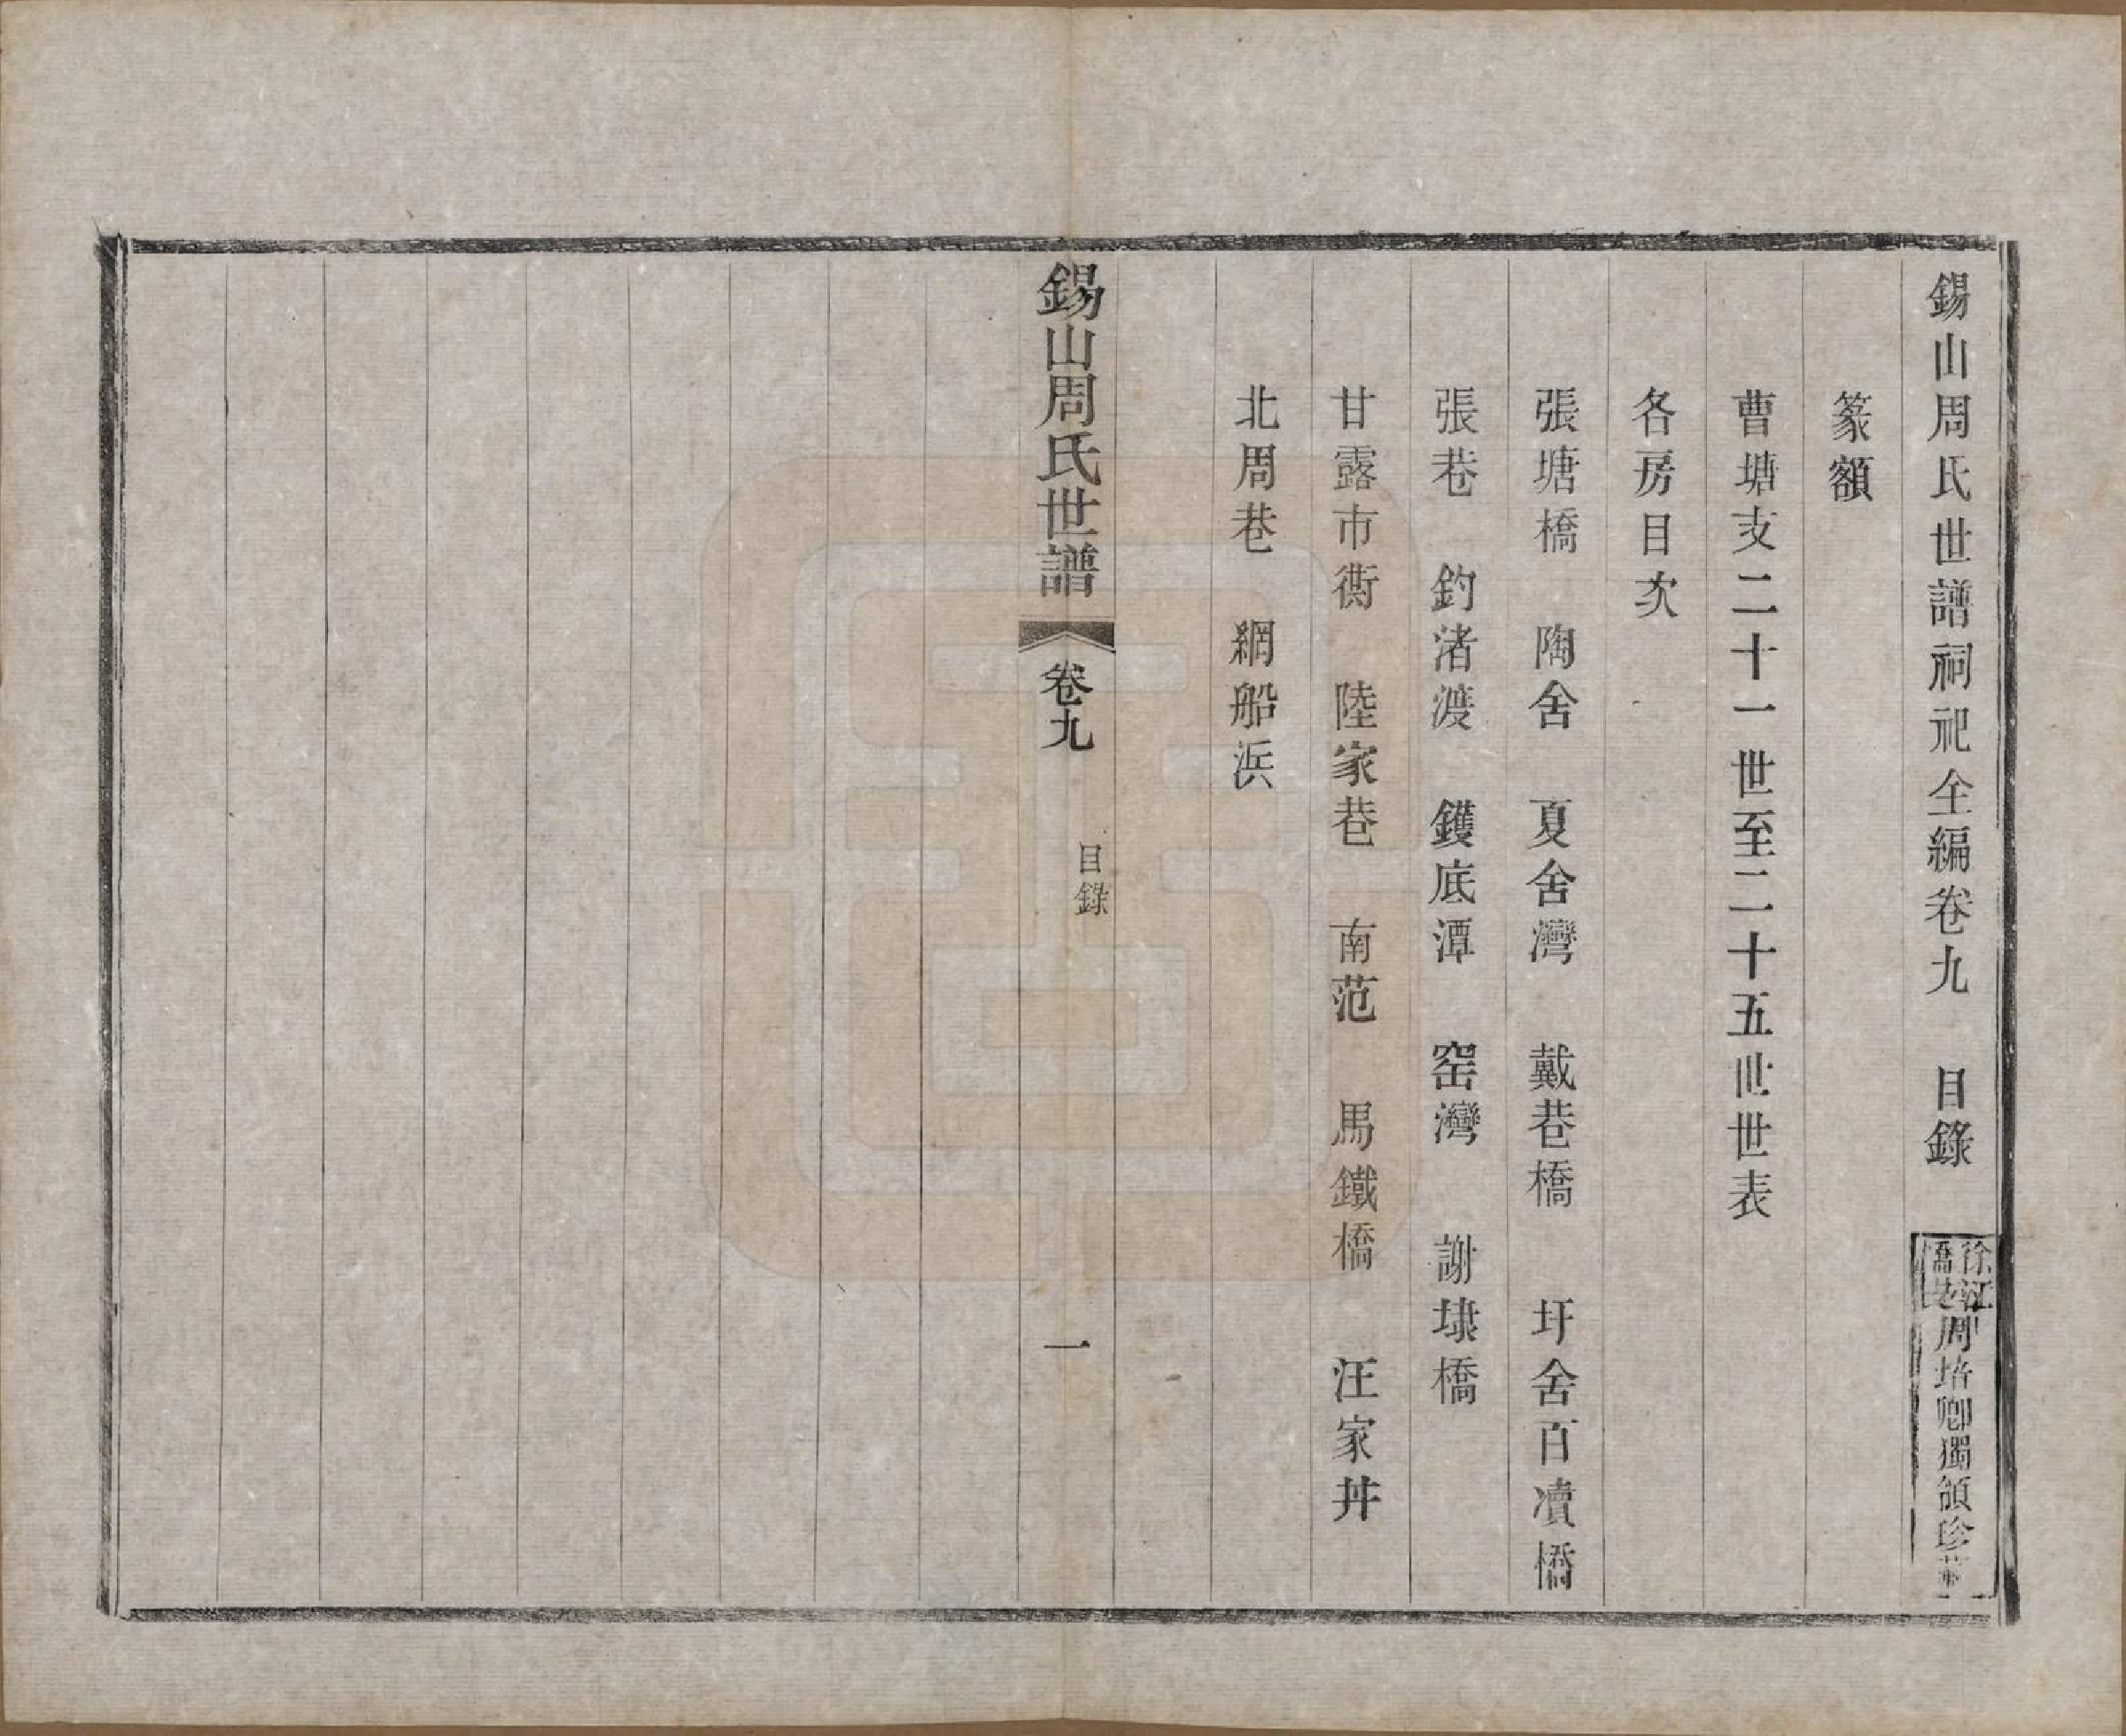 錫山周氏世譜祠祀全編卷九　目錄
周培卿獨頒珍
篆額
曹塘支二十一世至二十五世世表
各房目次
張塘橋　陶舍　夏舍灣　戴巷橋　圩舍百瀆橋
張巷　釣渚渡　鑊底潭　窑灣　謝埭橋
甘露市衖　陸家巷　南范　馬鐵橋　汪家丼
北周巷　網船浜
錫山周氏世譜　卷九　目錄　一